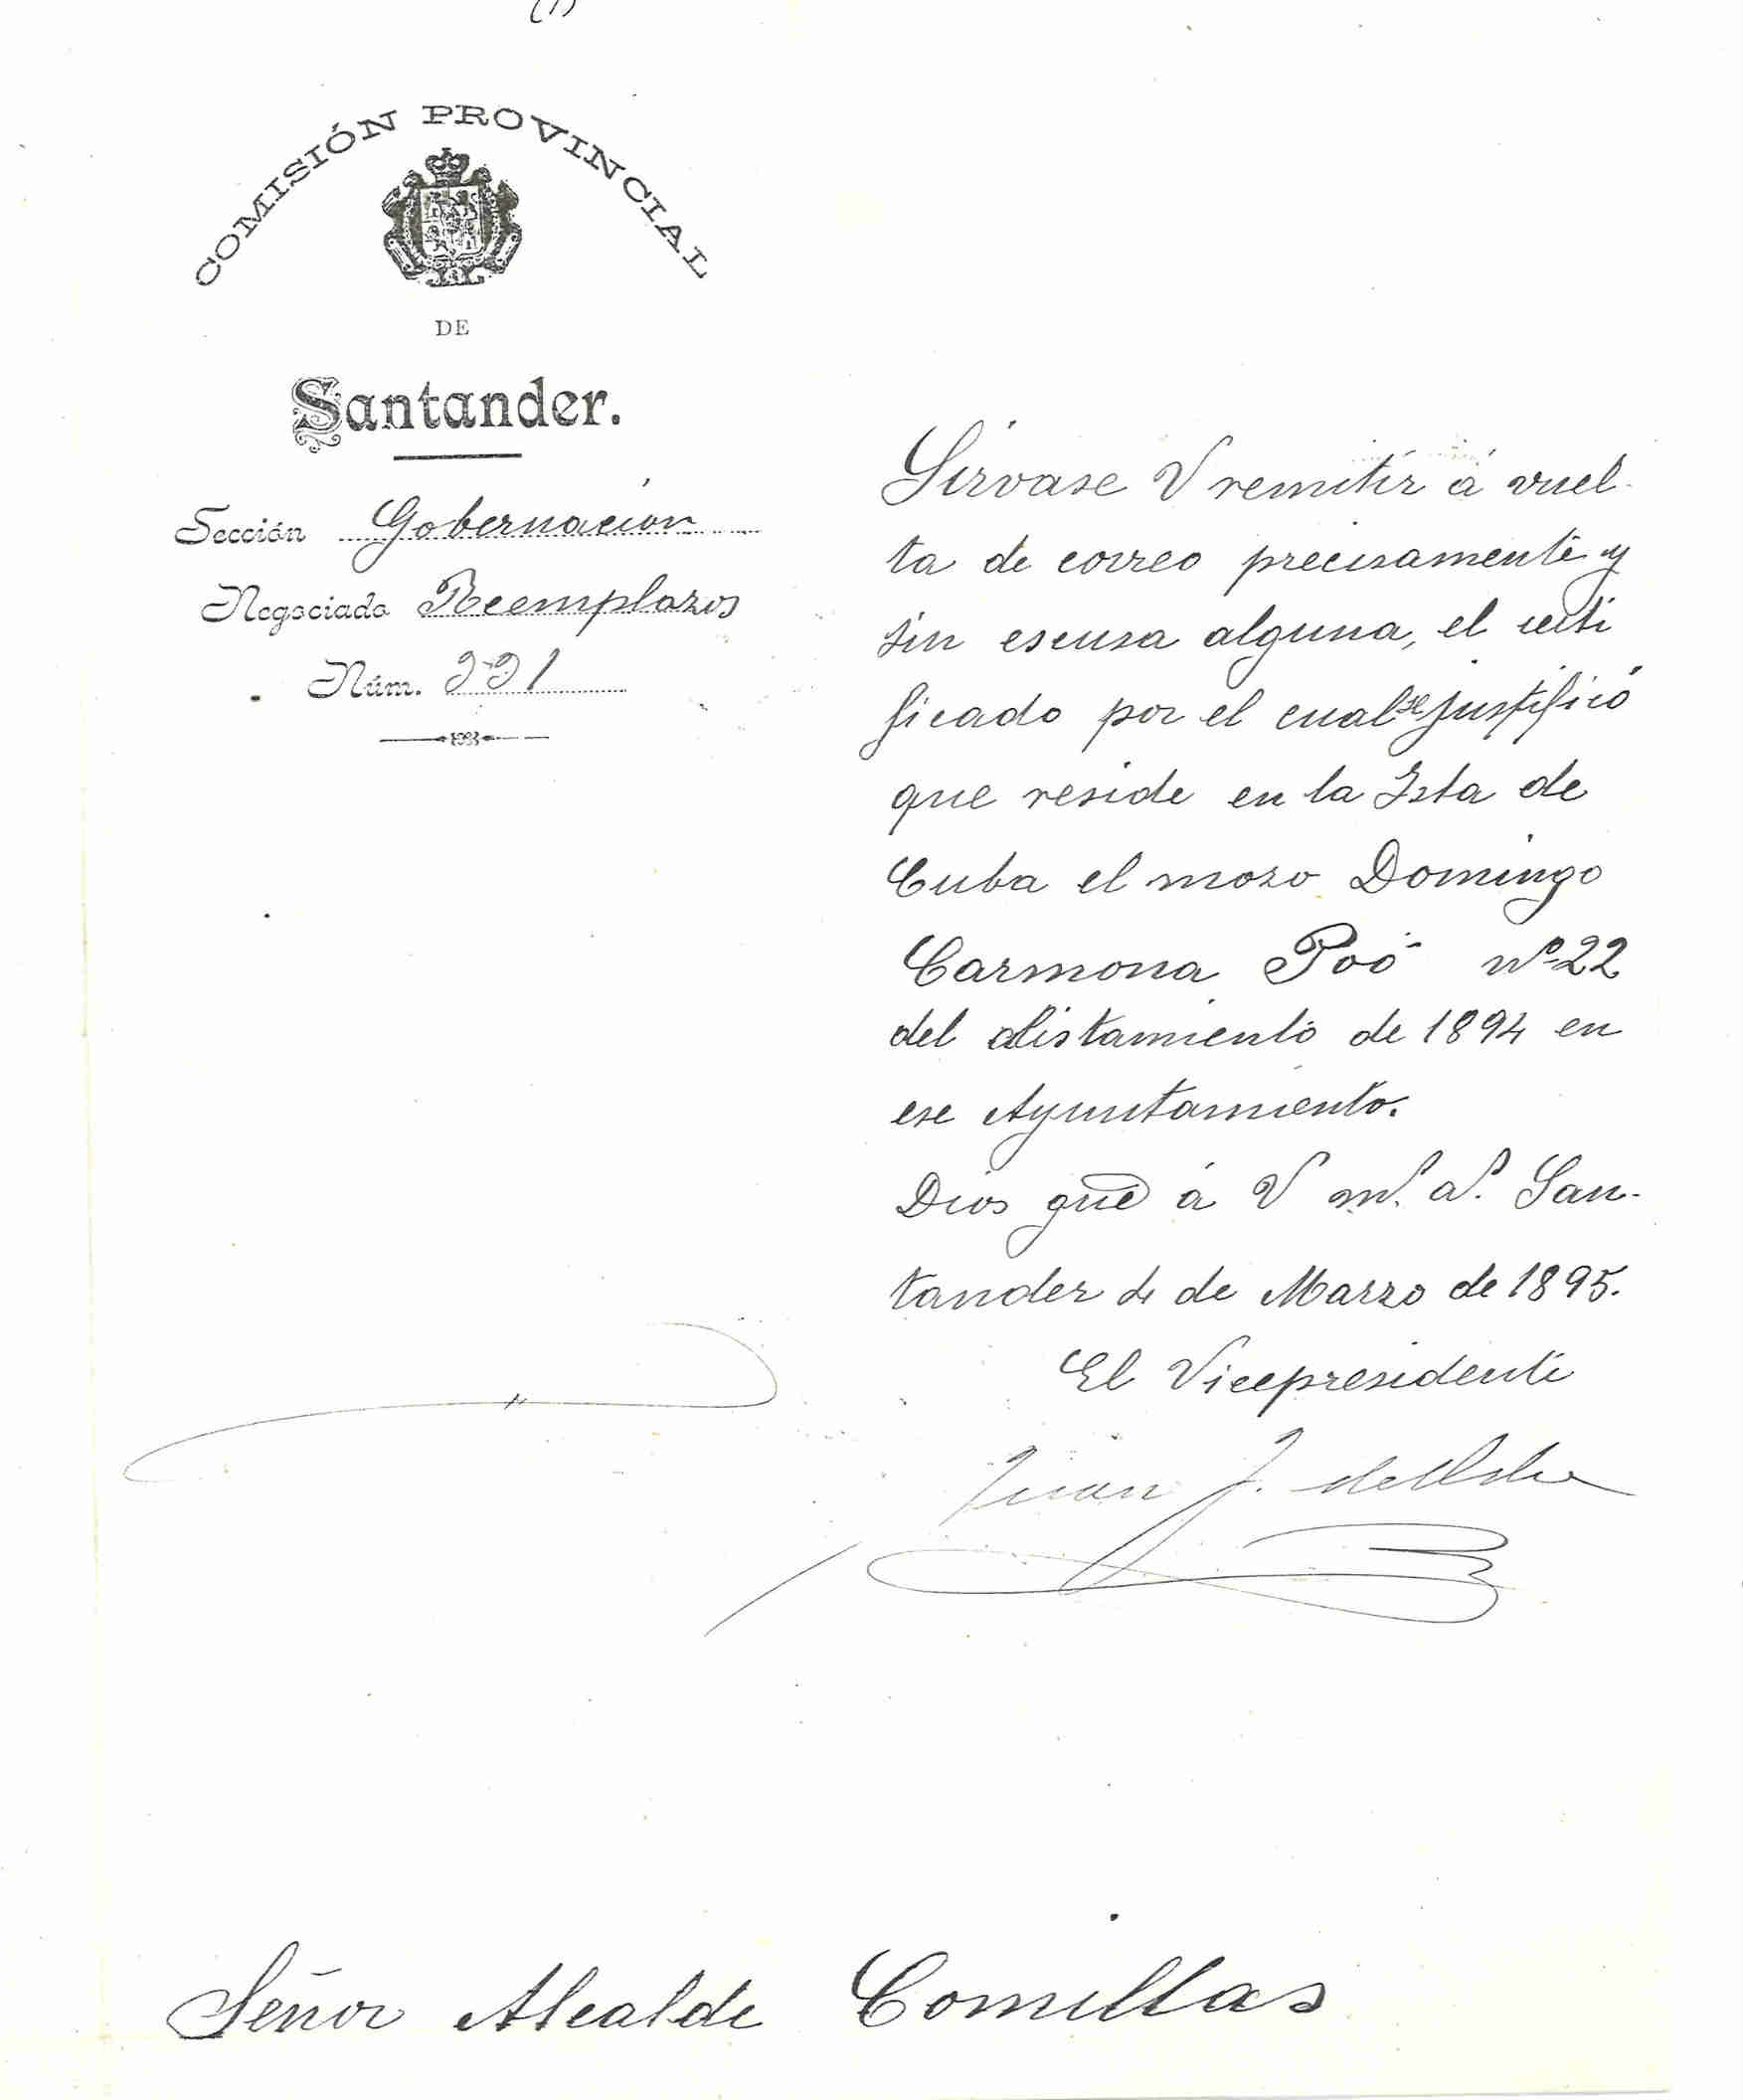 (1)
COMISIÓN PROVINCIAL
DE
Santander.
Sección Gobernación
Negociado Reemplazos
Núm. 991
Sírvase V remitir á vuel-
ta de correo precisamente y
sin escusa alguna, el certi
ficado por el cual se justificó
que reside en la Isla de
Cuba el mozo Domingo
Carmona Poó nº 22
del alistamiento de 1894 en
ese Ayuntamiento.
Dios gue á V ms. as. San-
tander 4 de Marzo de 1895.
El Vicepresidente
Juan J. de
Señor Alcalde Comillas